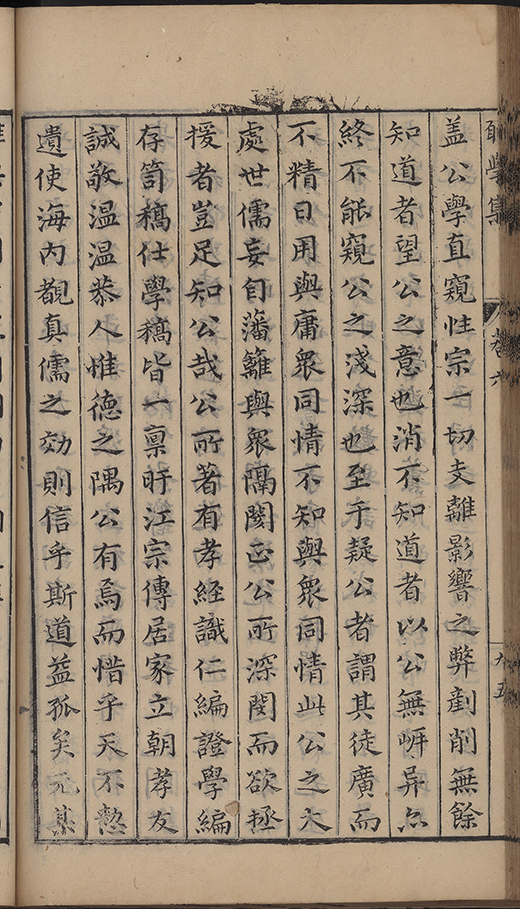 學集
卷六
九五
盖公學直窺性宗一切支離影響之弊剷削無餘
知道者望公之意也消不知道者以公無岍異尒
終不能窺公之淺深也至乎疑公者謂其徒廣而
不精日用與庸衆同情不知與衆同情此公之大
處世儒妄自藩籬與衆隔閡正公所深閔而欲拯
援者豈足知公哉公所著有孝經識仁編證學編
存笥稿仕學稿皆一禀旴江宗傳居家立朝孝友
誠敬温温恭人惟德之隅公有焉而惜乎天不憖
遺使海內覩真儒之効則信乎斯道益孤矣元某